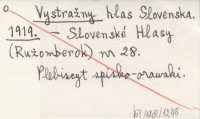 Vystražny hlas Slovenska.
1919. – Slovenské Hlasy
(Ružomberok) nr 28.
Plebiscyt spisko-orawski.